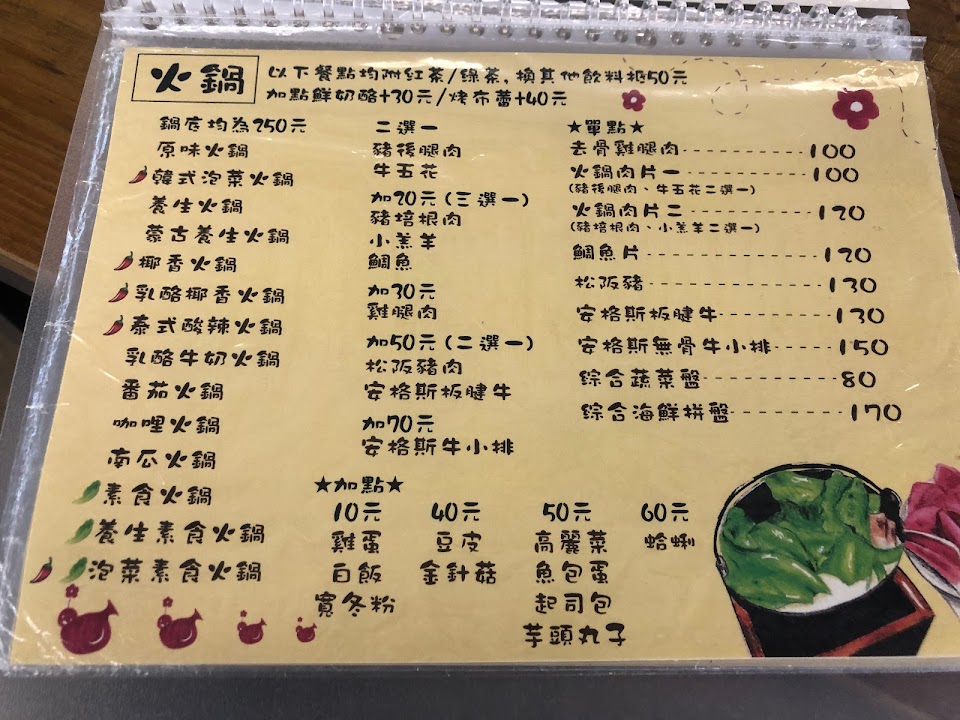 火鍋
以下餐點均附紅茶/綠茶,換其他飲料抵50元
加點鮮奶酪+30元/烤布蕾+40元
鍋底均為250元
原味火鍋
韓式泡菜火鍋
養生火鍋
蒙古養生火鍋
椰香火鍋
乳酪椰香火鍋
泰式酸辣火鍋
乳酪牛奶火鍋
番茄火鍋
咖哩火鍋
南瓜火鍋
素食火鍋
養生素食火鍋
泡菜素食火鍋
二選一
豬後腿肉
牛五花
加20元(三選一)
豬培根肉
小羔羊
鯛魚
加30元
雞腿肉
加50元(二選一)
松阪豬肉
安格斯板腱牛
加70元
安格斯牛小排
★單點★
去骨雞腿肉----------100
火鍋肉片一----------100
(豬後腿肉、牛五花二選一)
火鍋肉片二----------120
(豬培根肉、小羔羊二選一)
鯛魚片--------------120
松阪豬--------------130
安格斯板腱牛---------130
安格斯無骨牛小排-----150
綜合蔬菜盤----------80
綜合海鮮拼盤--------170
★加點★
10元 40元 50元 60元
雞蛋 豆皮 高麗菜 蛤蜊
白飯 金針菇 魚包蛋
寬冬粉 起司包
芋頭丸子